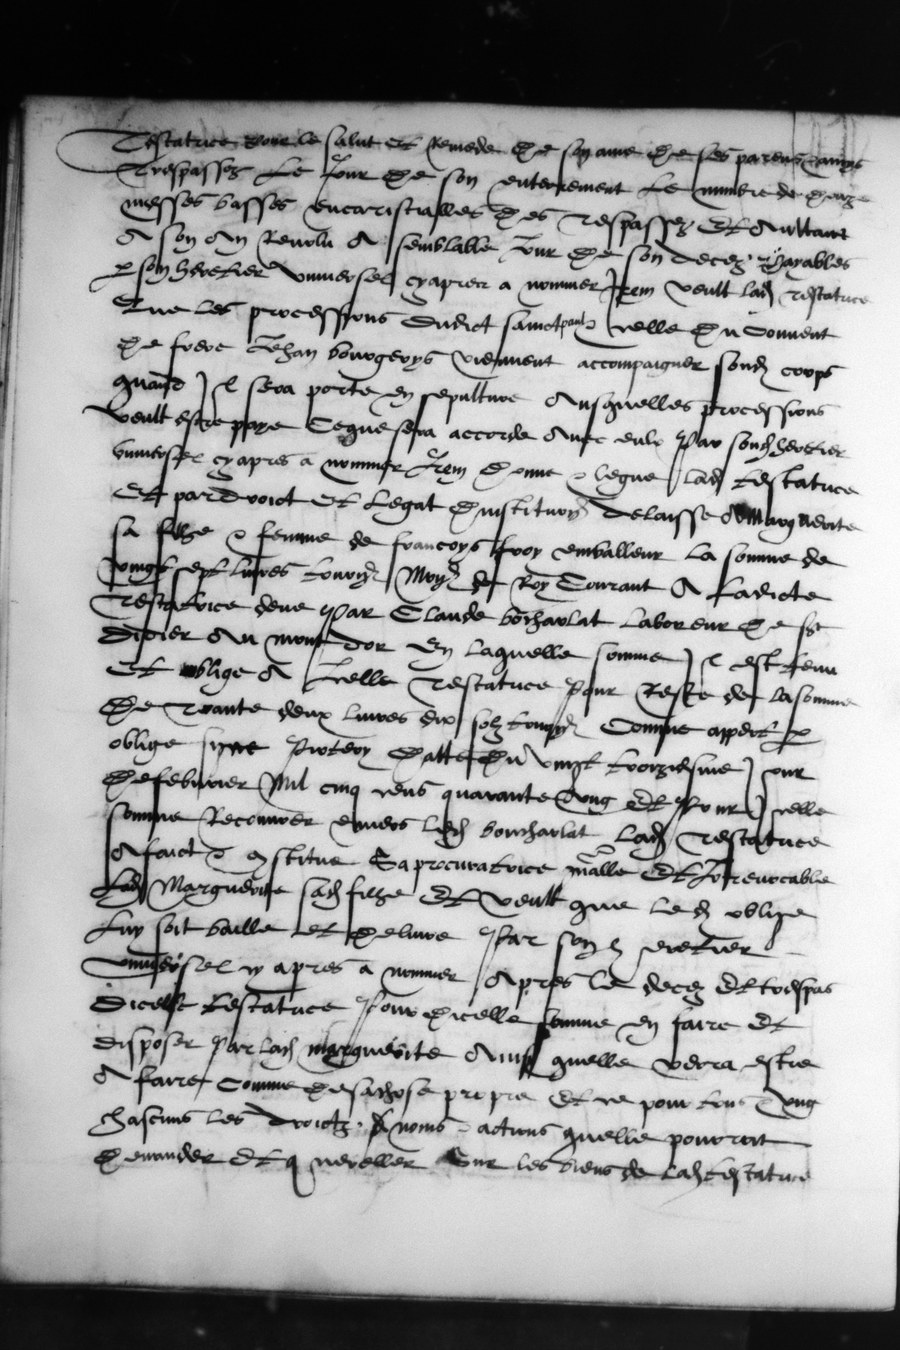 Testatrice pour le salut et remede de son ame de ses parens & amys
trespassez le jour de son enterrement le numbre de douze
messes basses eucaristialles des trespassez et aultant
a son an revolu a semblable jour de son decez payables
p son heretier universel cy apres a nommer Item veult lad testatrice
que les processions dudict sainct paul & celle du couvent
de frere Jehan bourgeoys viennent accompaigner sond corps
quand il sera porte en sepulture Ausquelles processions
veult estre paye ce que sera accorde avec eulx par sond heretier
universel cy apres a nommer Item donne & legue lad testatrice
et par droict et legat d'institution delaisse a Marguerite
sa fille & femme de francoys emballeur la somme de
vingt sept livres tourn monn du Roy courant A ladicte
testatrice deue par Claude bocharlat laboreur de st
Didier au mont dor En laquelle somme il est tenu
et oblige a icelle testatrice pour reste de la somme
de trante deux livres dix solz tourn Comme appert p
oblige signe datte du vingt troiziesme jour
de febvrier Mil cinq cens quarante ung Et pour icelle
somme recouvrer envers led bourcharlat lad testatrice
A faict & constitue sa procuratrice et Irrevocable
lad Marguerite sad fille Et veult que led oblige
luy soit baille et delivre par sond heretier
universel cy apres a nommer Apres le decez et trespas
dicelle testatrice pour dicelle somme en faire et
disposer par lad marguerite Ainsi quelle verra estre
A faire comme de sa chose propre Et ce pour tous & ung
chascuns les droictz noms & actions quelle pourroit
demander et quereller sur les biens de lad testatrice